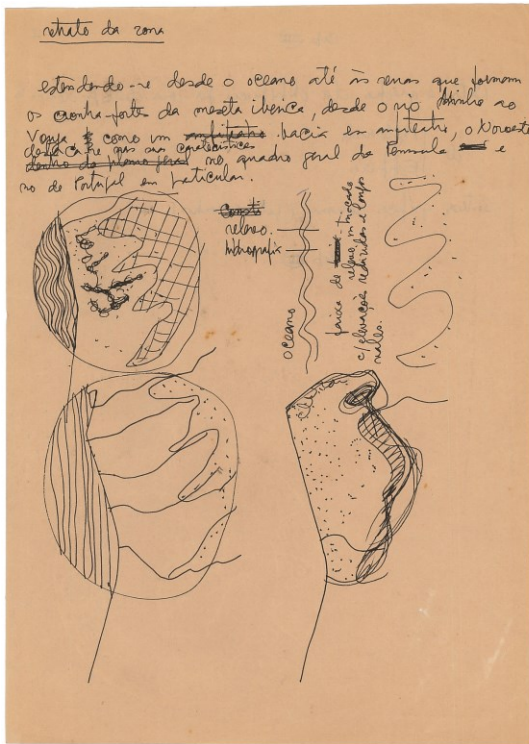 retrato da zona
estendendo-se desde o oceano até às serras que formam
os contra-fortes da meseta ibérica, desde o rio Minho ao
Vouga como um anfiteatro. bacia em anfiteatro, o Noroeste
destaca-se nas suas características
dentro do plano geral no quadro geral da Península e
no de Portugal em particular.
relevo
hidrografia
oceano
faixa de
relevo
c/ elevações reduzidas e longos
vales.